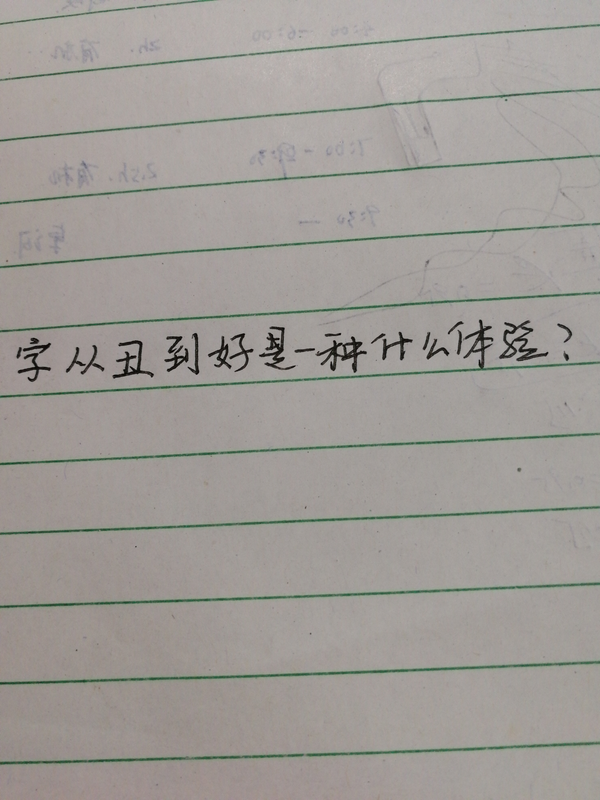 字从丑到好是一种什么体验？